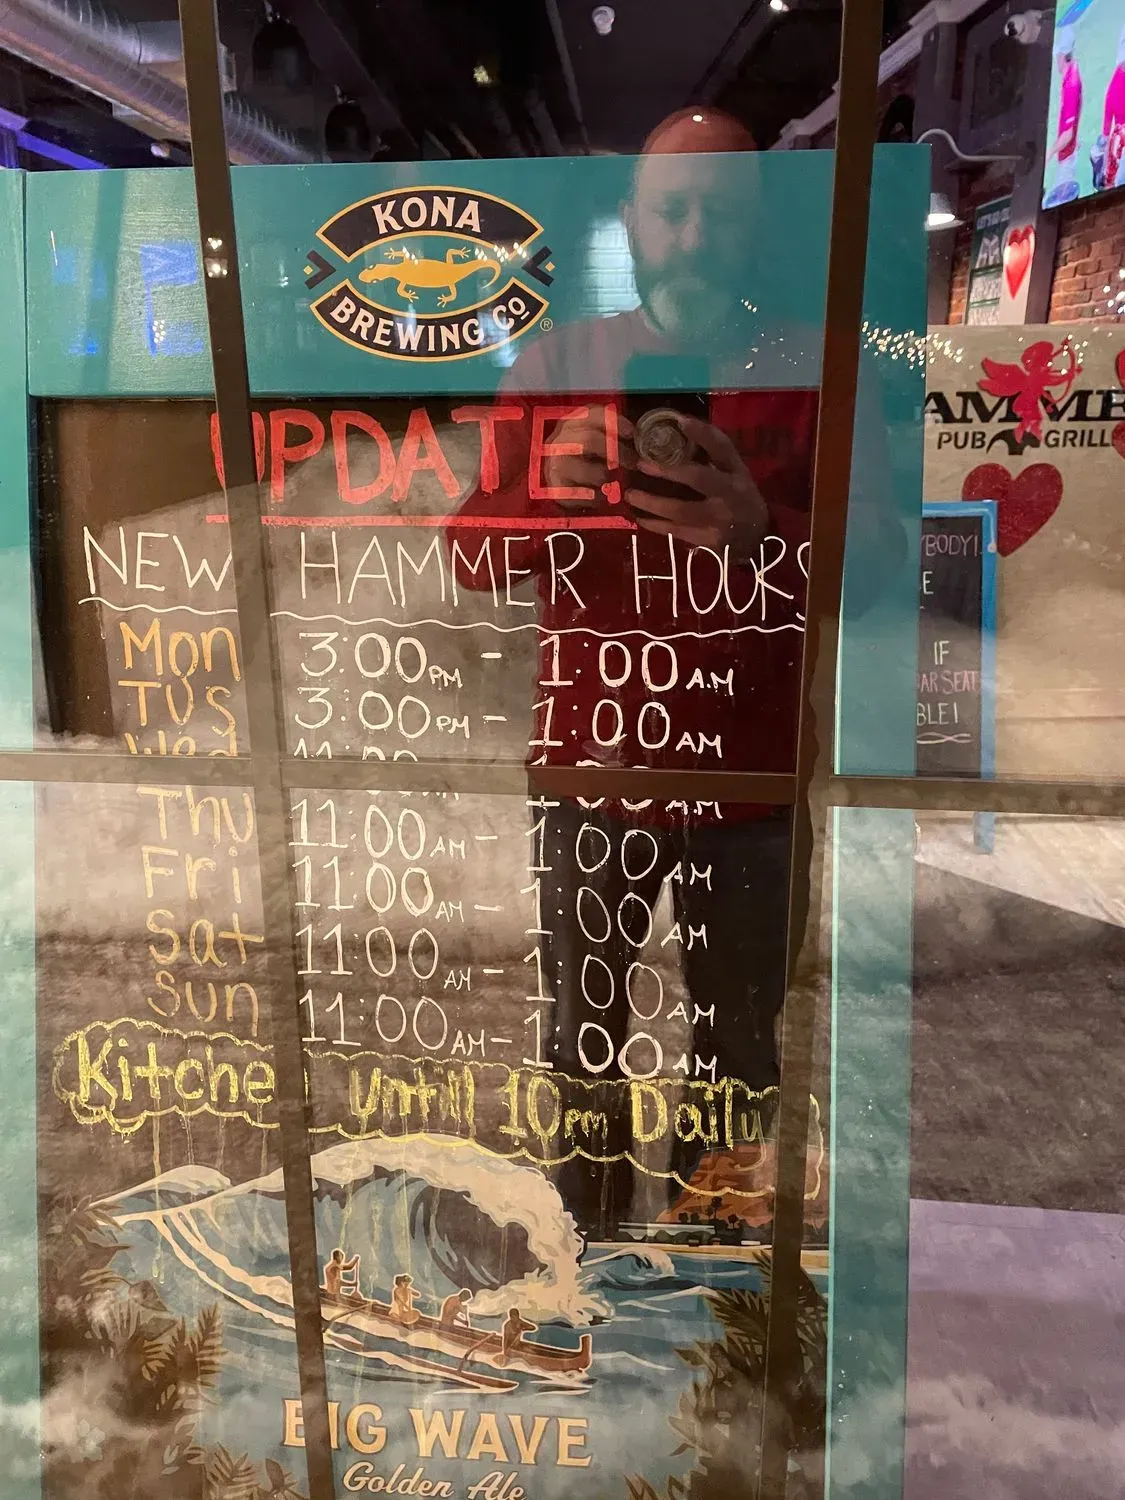 KONA
BREWING CO
®
UPDATE!
NEW HAMMER HOURS
Mon 3:00PM - 1:00A.M
TUS 3:00PM - 1:00AM
Wed 11:00 1:00A.M
Thu 11:00AM - 1:00AM
Fri 11:00AM - 1:00AM
Sat 11:00AM - 1:00AM
Sun 11:00AM - 1:00AM
Kitche until 10pm Daily
BIG WAVE
Golden Ale
AMME
PUB GRILL
YBODY!
E
IF
BAR SEAT
BLE!